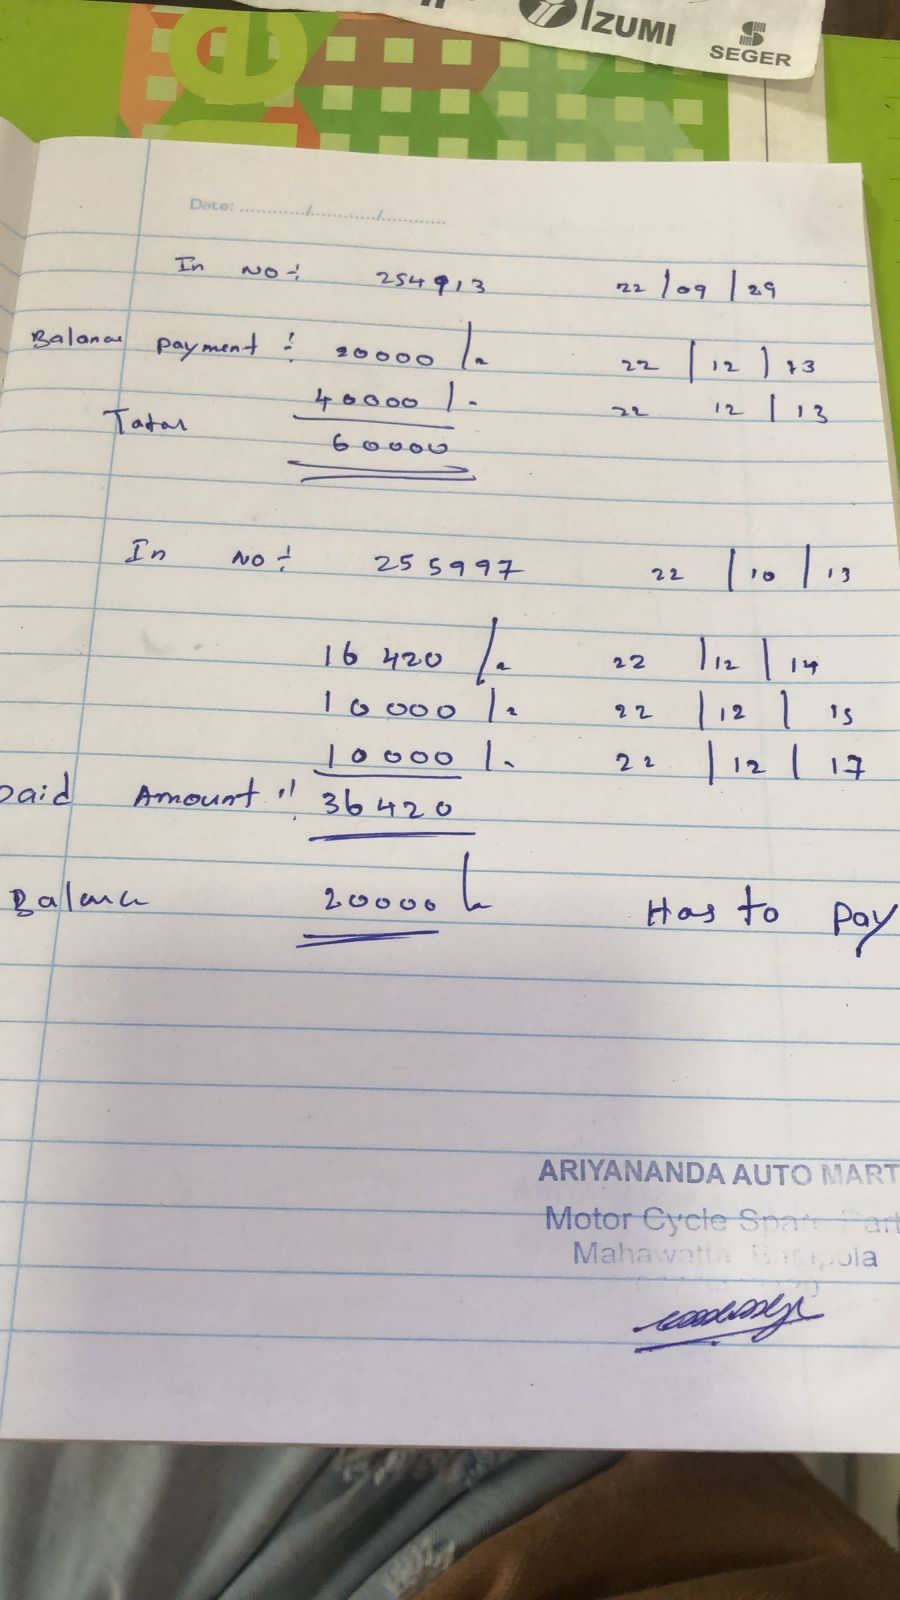 IZUMI
SEGER
Date: ............/............/............
In No÷ 254913 22/09/29
Balance payment ÷ 20000/- 22/12/13
40000/- 22 12/13
Total
60000
In No÷ 255997 22/10/13
16420/- 22/12/14
10000/- 22/12/15
10000/- 22/12/17
paid Amount ÷ 36420
Balance 20000/- Has to pay
ARIYANANDA AUTO MART
Motor Cycle Spare Part
Mahawatta